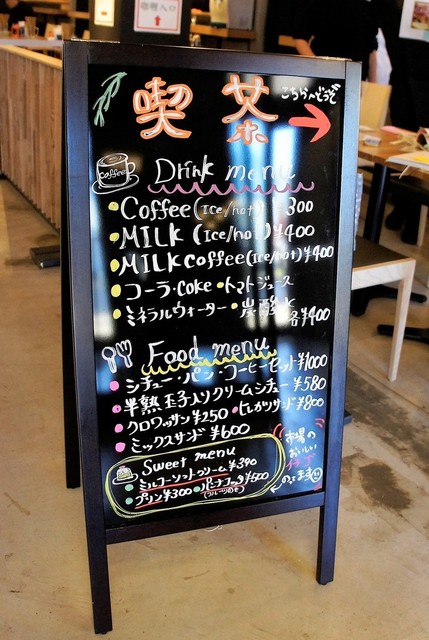 喫茶
こちらへどうぞ
coffee
Drink menu
Coffee (Ice/hot) ¥300
MILK (Ice/hot) ¥400
MILK coffee (Ice/hot) ¥400
コーラ・coke・トマトジュース
・ミネラルウォーター・炭酸水
各¥400
Food menu
シチュー・パン・コーヒーセット ¥1000
半熟玉子入りクリームシチュー ¥580
クロワッサン ¥250
サンド ¥800
ミックスサンド ¥600
市場の
おいしい
Sweet menu
クリーム ¥390
プリン ¥300 ¥500